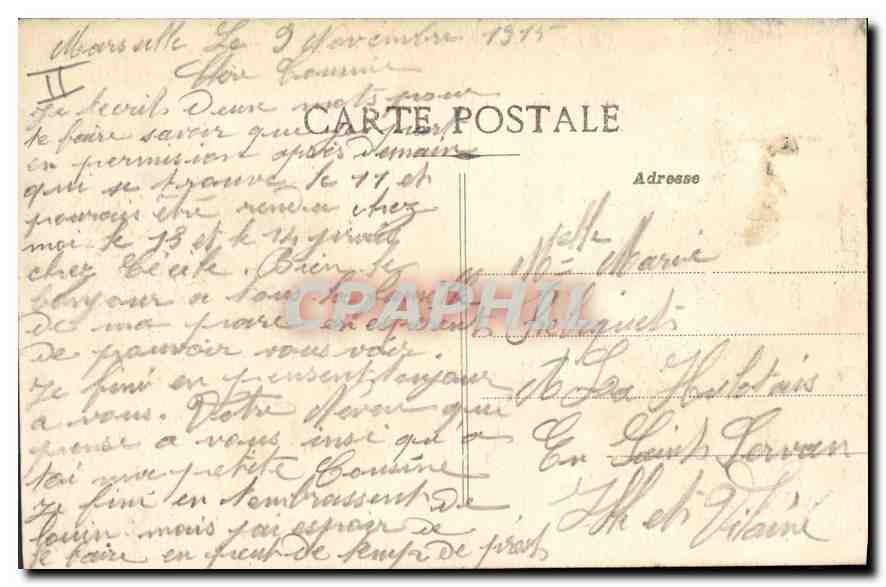 Marseille Le 9 Novembre 1915
II
Chère Cousine
Je t'ecrit Deux mots pour
te faire savoir que je part
en permission apres demain
qui se trouve le 11 et
pourais être rendu chez
moi le 13 et le 14 j'irais
chez Cécile. Bien le
bonjour a tout la famille
de ma pare en espérent
de pouvoir vous voir.
Je fini en pensent toujour
a vous. Votre Neveu que
pense a vous insi qu'a
toi ma petite Cousine
Je fini en t'embrassent De
louin mais j'ai espoir de
le faire en peut de temp de près
CARTE POSTALE
Adresse
Melle Marie
A La Hulotais
En Saint Servan
Ille et Vilaine
CPAPHIL